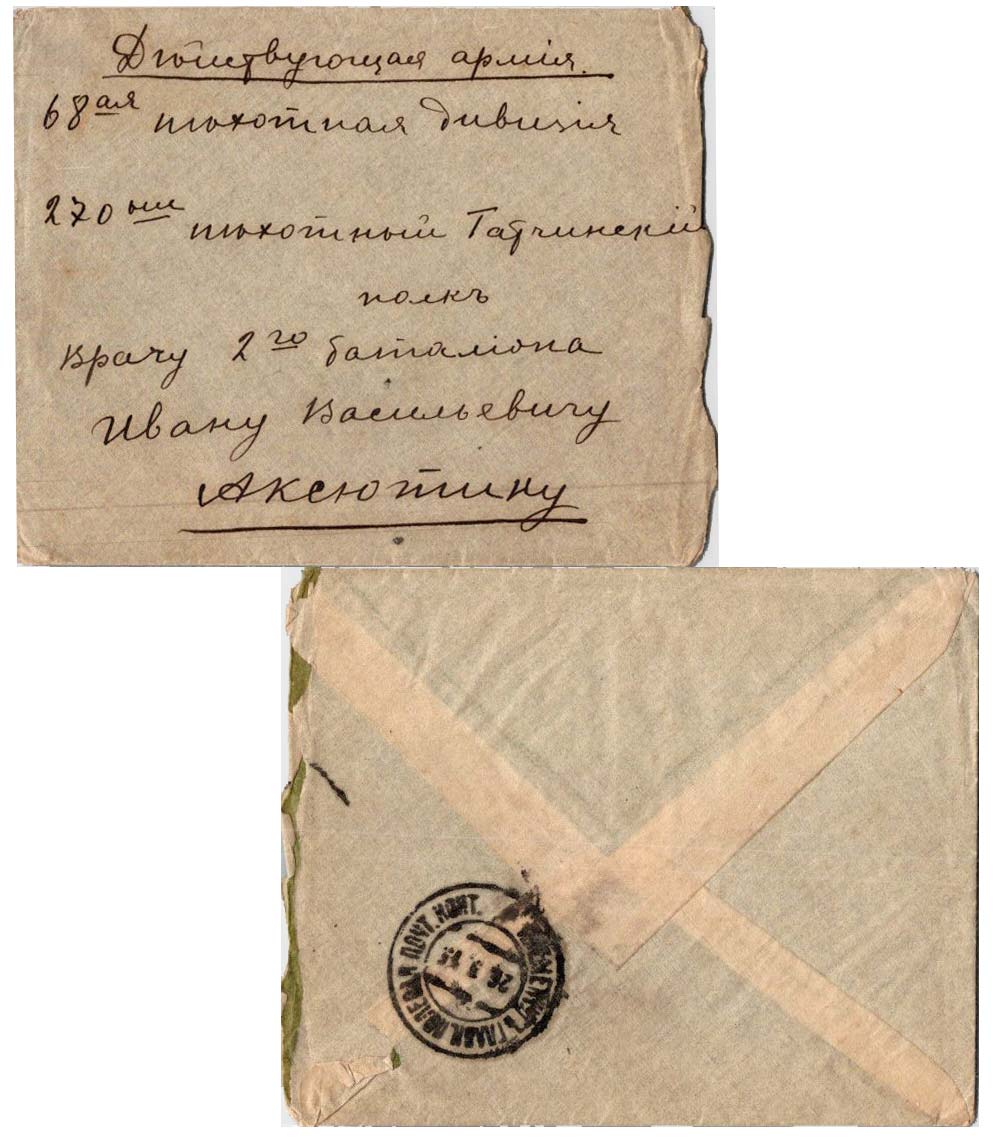 Дѣйствующая армія.
68ая пѣхотная дивизія
270ый пѣхотный Гатчинскій
полкъ
Врачу 2го баталіона
Ивану Васильевичу
Аксютину
ГЛАВН. ПОЛЕВАЯ ПОЧТ. КОНТ.